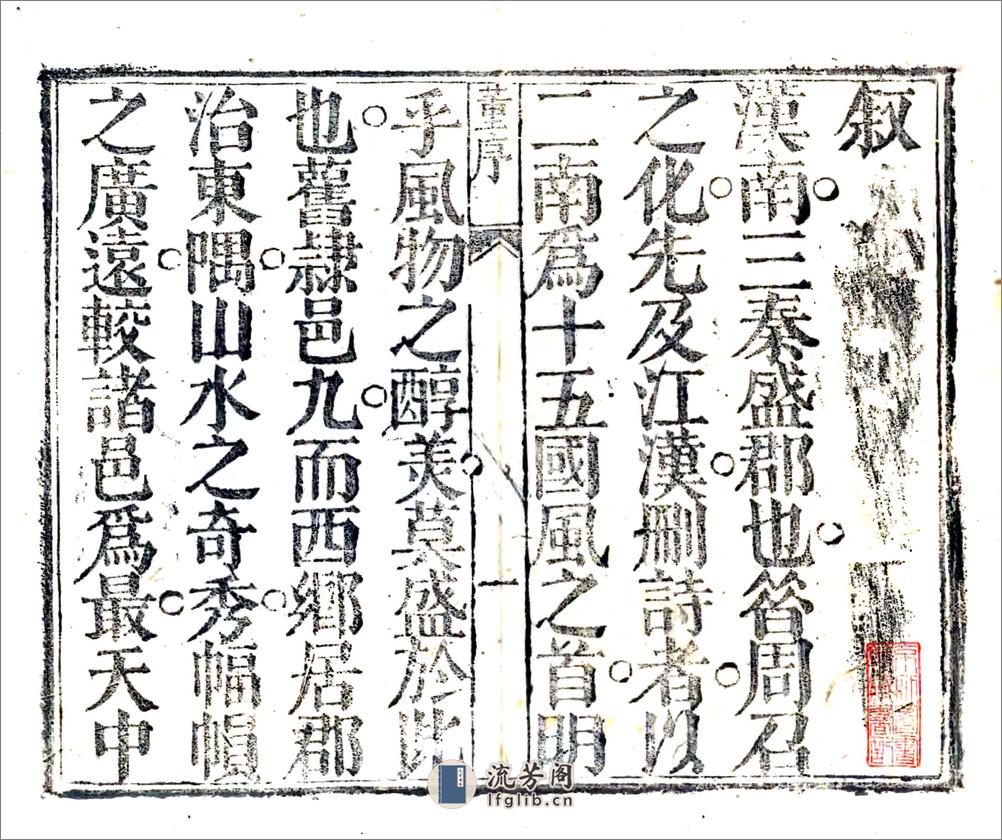 叙
漢南三秦盛郡也㫺周召
之化先及江漢刪詩者以
二南爲十五國風之首明
董序
一
乎風物之醇美莫盛於此
也舊隷邑九而西鄉居郡
治東隅山水之奇秀幅幀
之廣遠較諸邑爲最天中
流芳阁
lfglib.cn